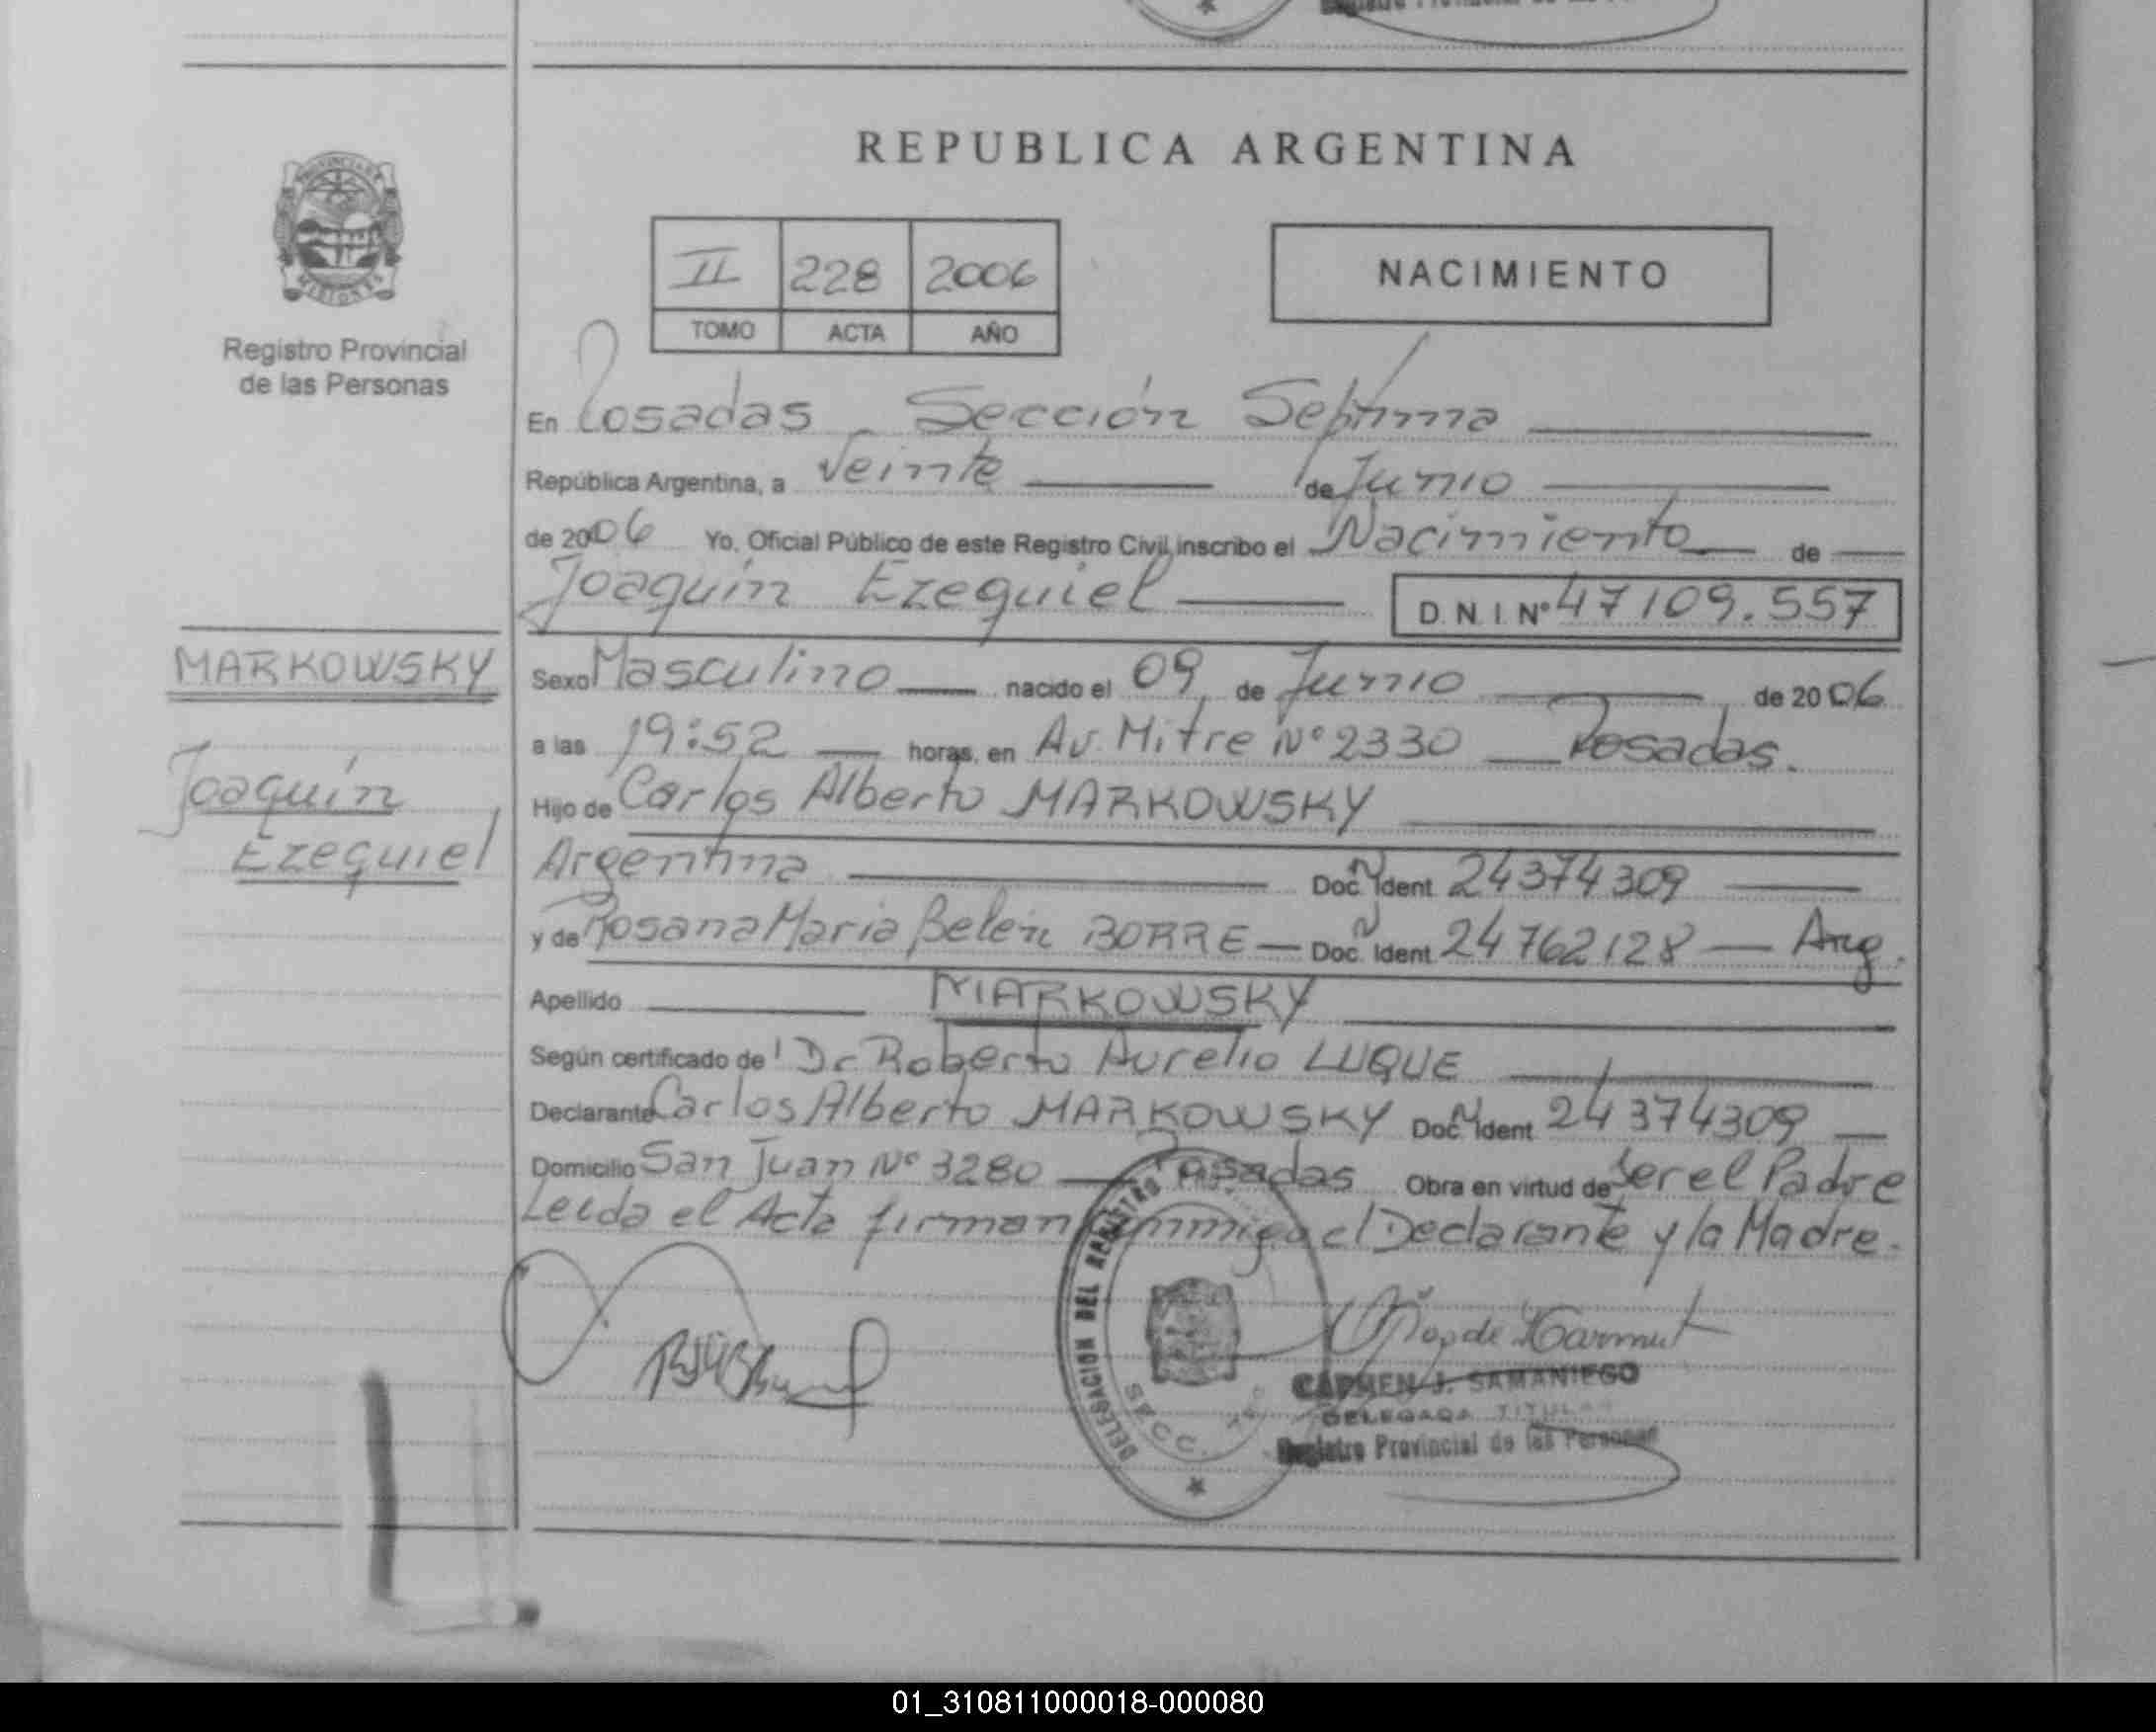 REPUBLICA ARGENTINA
II 228 2006
TOMO ACTA AÑO
NACIMIENTO
PROVINCIA DE
MISIONES
Registro Provincial
de las Personas
En Posadas - Sección Septima
República Argentina, a Veinte de Junio
de 2006 Yo, Oficial Público de este Registro Civil, inscribo el Nacimiento de
Joaquín Ezequiel D.N.I. Nº 47109.557
MARKOWSKY
Joaquín
Ezequiel
Sexo Masculino nacido el 09 de Junio de 2006
a las 19:52 horas, en Av. Mitre Nº 2330 Posadas.
Hijo de Carlos Alberto MARKOWSKY
Argentina Doc. Ident. 24374309
y de Rosana Maria Belén BORRE Doc. Ident. 24762128 Arg.
Apellido MARKOWSKY
Según certificado de Dr Roberto Aurelio LUQUE
Declarante Carlos Alberto MARKOWSKY Doc. Ident. 24374309
Domicilio San Juan Nº 3280 Posadas Obra en virtud de Ser el Padre
Leida el Acta firman conmigo el Declarante y la Madre.
DELEGACION DEL REGISTRO
SECC.
CARMEN J. SAMANIEGO
DELEGADA TITULAR
Registro Provincial de las Personas
01_310811000018-000080